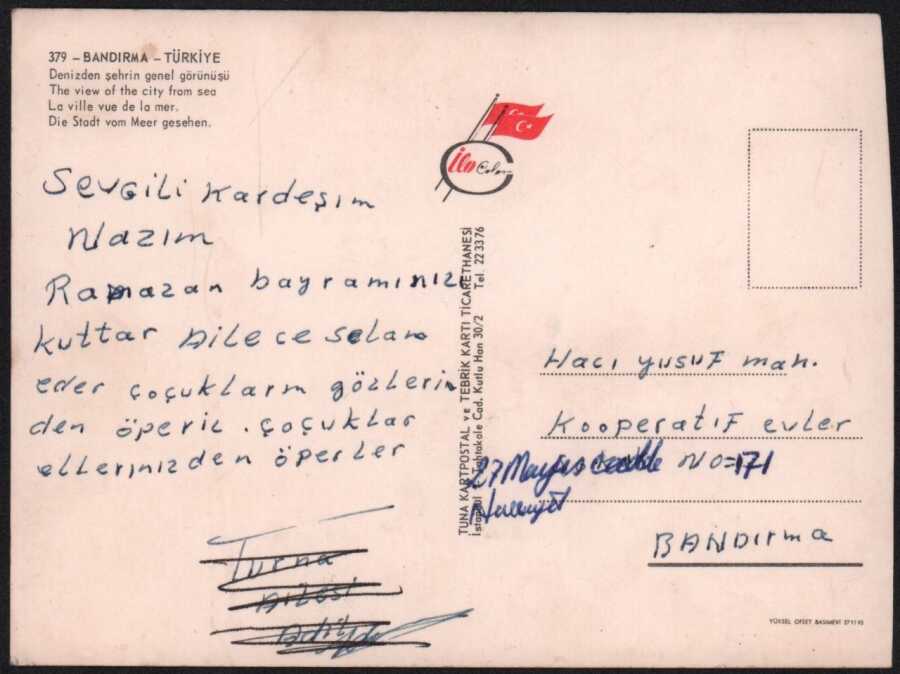 379 – BANDIRMA – TÜRKİYE
Denizden şehrin genel görünüşü
The view of the city from sea
La ville vue de la mer.
Die Stadt vom Meer gesehen.
Color
Sevgili Kardeşım
Nazım
Ramazan bayramınızı
kuttar Ailece selam
eder çoçukların gözlerin
den öperiz . çoçuklar
ellerinızden öperler
Turna
Ailesi
TUNA KARTPOSTAL ve TEBRİK KARTI TİCARETHANESİ
İstanbul Tahtakale Cad. Kutlu Han 30/2 Tel. 22 33 76
Hacı yusuf mah.
Kooperatıf evler
27 Mayıs NO=171
BANDIrma
YÜKSEL OFSET BASIMEVİ 27 11 93